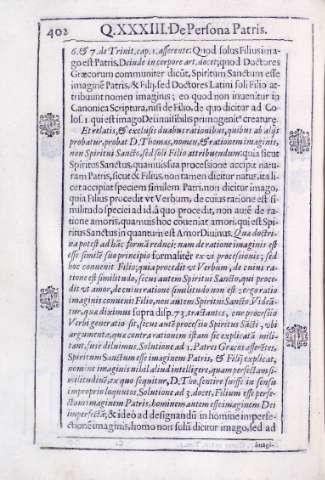 402 Q.XXXIII. De Persona Patris.
6. & 7. de Trinit. cap. 1. asserente: Quod solus Filius ima
go est Patris, Deinde in corpore art. docet; quod Doctores
Græcorum communiter dicūt, Spiritum Sanctum esse
imaginē Patris, & Filij, sed Doctores Latini soli Filio at
tribuunt nomen imaginis; eo quod non inuenitur in
Canonica Scriptura, nisi de Filio, de quo dicitur ad Co
los. 1. qui est imago Dei inuisibilis primogenit⁹ creaturæ.
Et relatis, & exclusis duabus rationibus, quibus ab alijs
probatur, probat D. Thomas, nomen, & rationem imaginis,
non Spiritui Sancto, sed soli Filio attribuendum; quia sicut
Spiritus Sanctus, quamuis sua processione accipit natu-
ram Patris, sicut & Filius, non tamen dicitur natus, ita li
cet accipiat speciem similem Patri, non dicitur imago,
quia Filius procedit vt Verbum, de cuius ratione est si-
militudo speciei ad id à quo procedit, non autē de ra-
tione amoris, quamuis hoc cōueniat amori, qui est Spi
ritus Sanctus in quantum est Amor Diuinus. Qua doctri
na potest ad hāc formā reduci: nam de ratione imaginis est
esse similē suo principio formalitèr ex vi processionis; sed
hoc conuenit Filio; quia procedit vt Verbum, de cuius ra-
tione est similitudo, secus autem Spiritui Sancto, qui proce-
dit vt amor, de cuius ratione similitudo non est: ergo ratio
imaginis conuenit Filio, non autem Spiritui Sancto. Videā
tur, quæ diximus supra disp. 73. tractantes, cur processio
Verbi generatio sit, secus autē processio Spiritus Sācti, vbi
argumenta, quæ contra rationem istam sic explicatā mili-
tant, fuse diluimus. Solutione ad 1. Patres Græcos asserētes,
Spiritum Sanctum esse imaginem Patris, & Filij explicat,
nomine imaginis nihil aliud intelligere, quam perfectam si-
militudinē, ex quo sequitur, D. Tho. sentire fuisse in sensu
improprio loquutos. Solutione ad 3. docet, Filium esse perfe-
ctam imaginem Patris, hominem autem esse imaginem Dei
imperfectā, & ideo ad designandū in homine imperfe-
ctionē imaginis, homo non solū dicitur imago, sed ad
imagi-